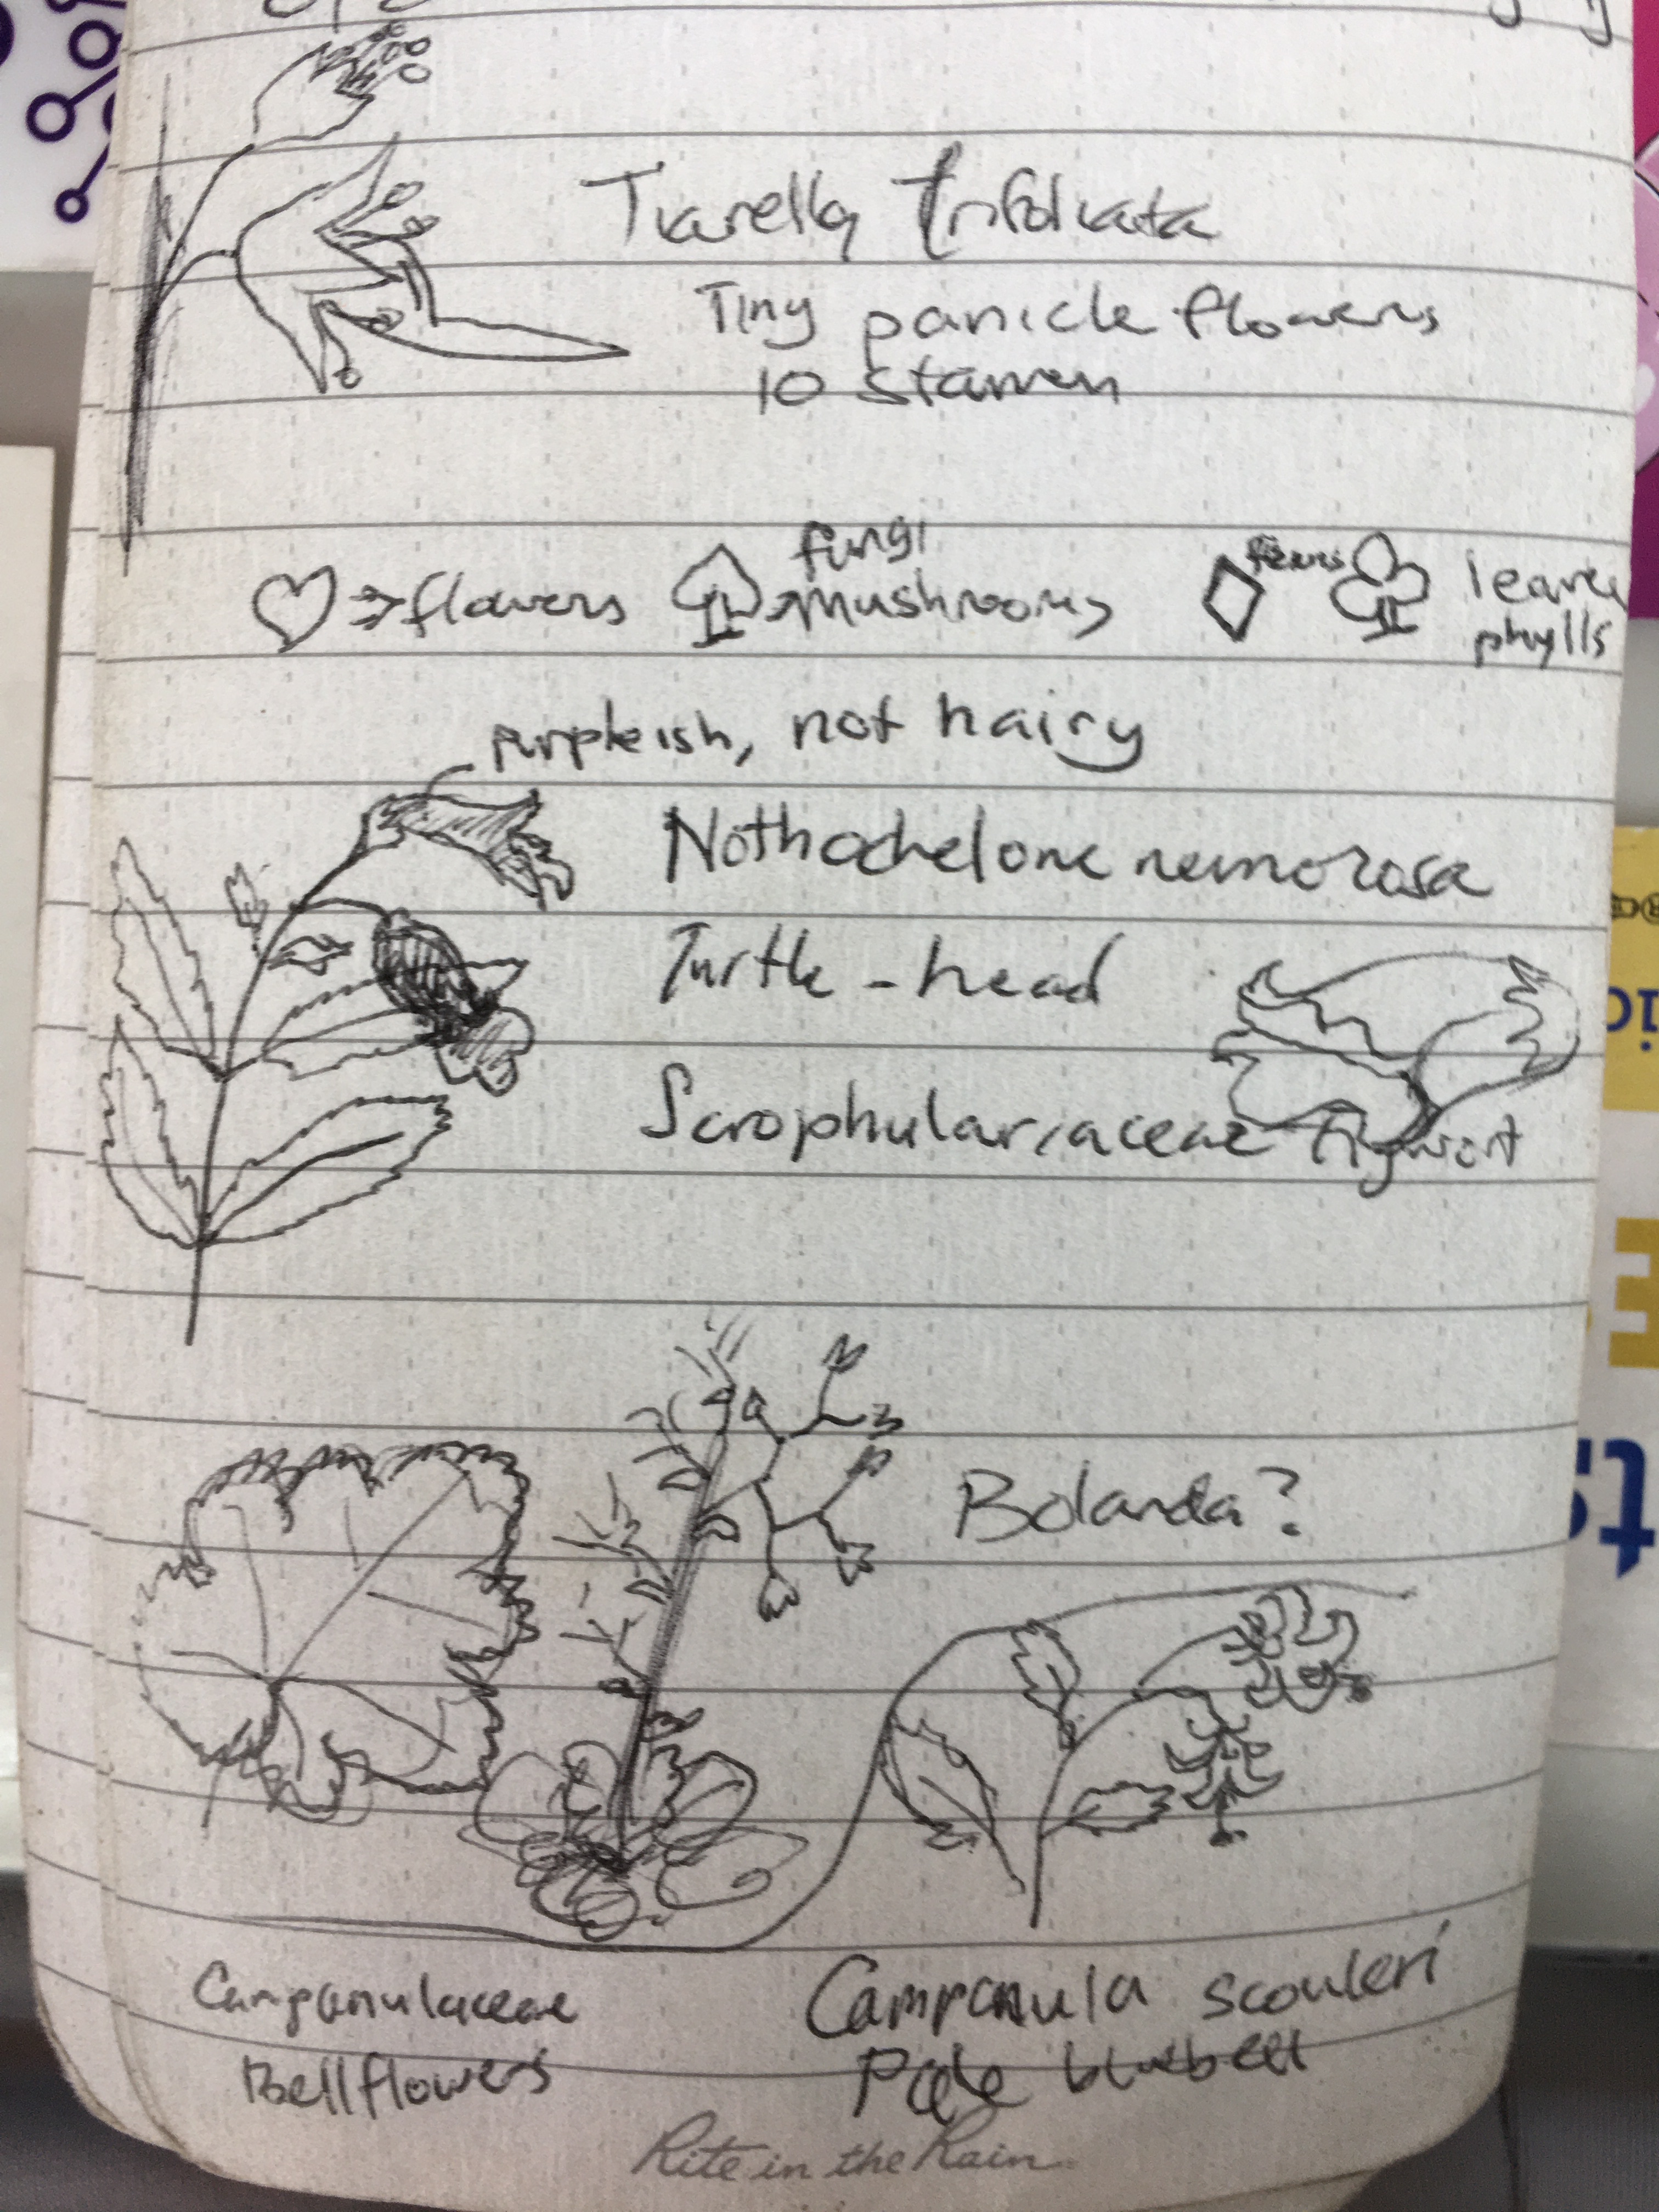 Tiarella trifoliata
Tiny panicle flowers
10 stamen
flowers fungi mushrooms ferns leaves phylls
purpleish, not hairy
Nothochelone nemorosa
Turtle-head
Scrophulariaceae Figwort
Bolanda?
Campanulaceae Campanula scouleri
Bellflowers Pale bluebell
Rite in the Rain